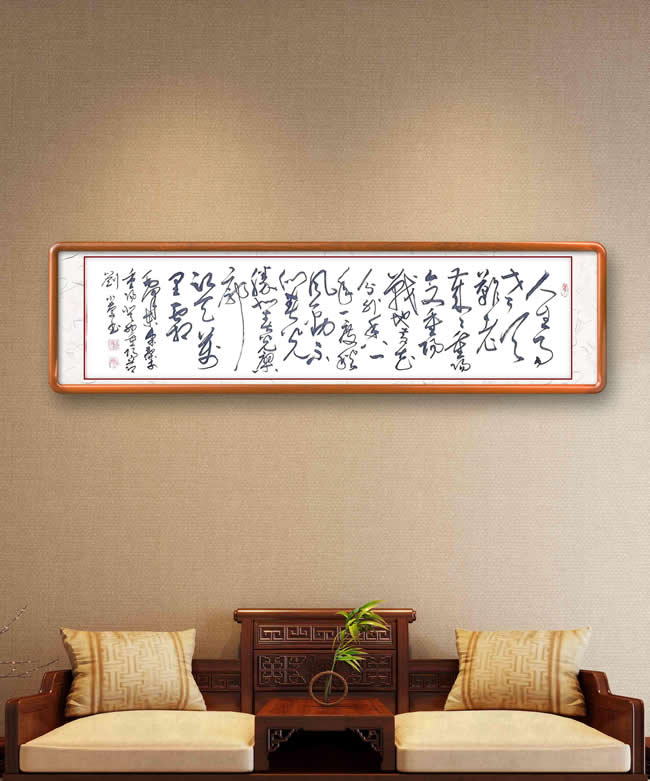 人生易
老天
难老
岁岁重阳
今又重阳
战地黄花
分外香一
年一度秋
风劲不
似春光
胜似春光寥
廓
江天万
里霜
重阳
劉